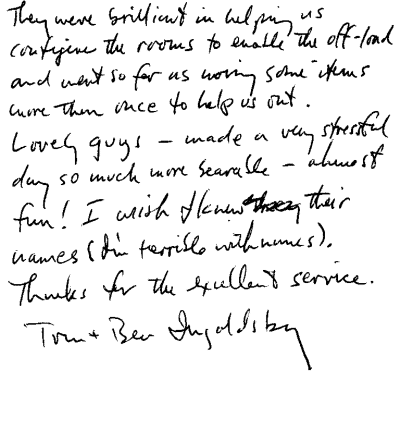 They were brilliant in helping us
configure the rooms to enable the off-load
and went so far as moving some items
more than once to help us out.
Lovely guys – made a very stressful
day so much more bearable – almost
fun! I wish I knew their
names (I'm terrible with names).
Thanks for the excellent service.
Tom + Bev Ingoldsby